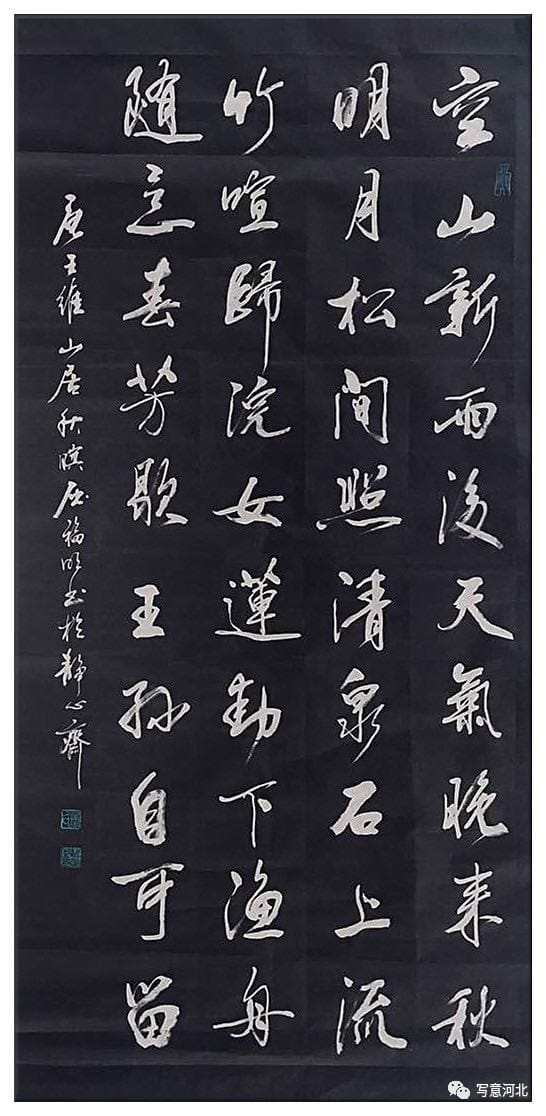 空山新雨後天氣晚来秋
明月松间照清泉石上流
竹喧歸浣女蓮動下漁舟
随意春芳歇王孫自可留
唐王維山居秋暝福明书於静心齋
写意河北